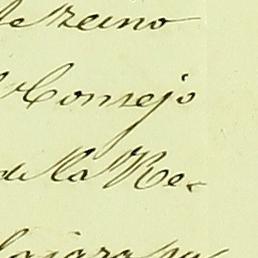 de Reino
Consejo
de la Re-